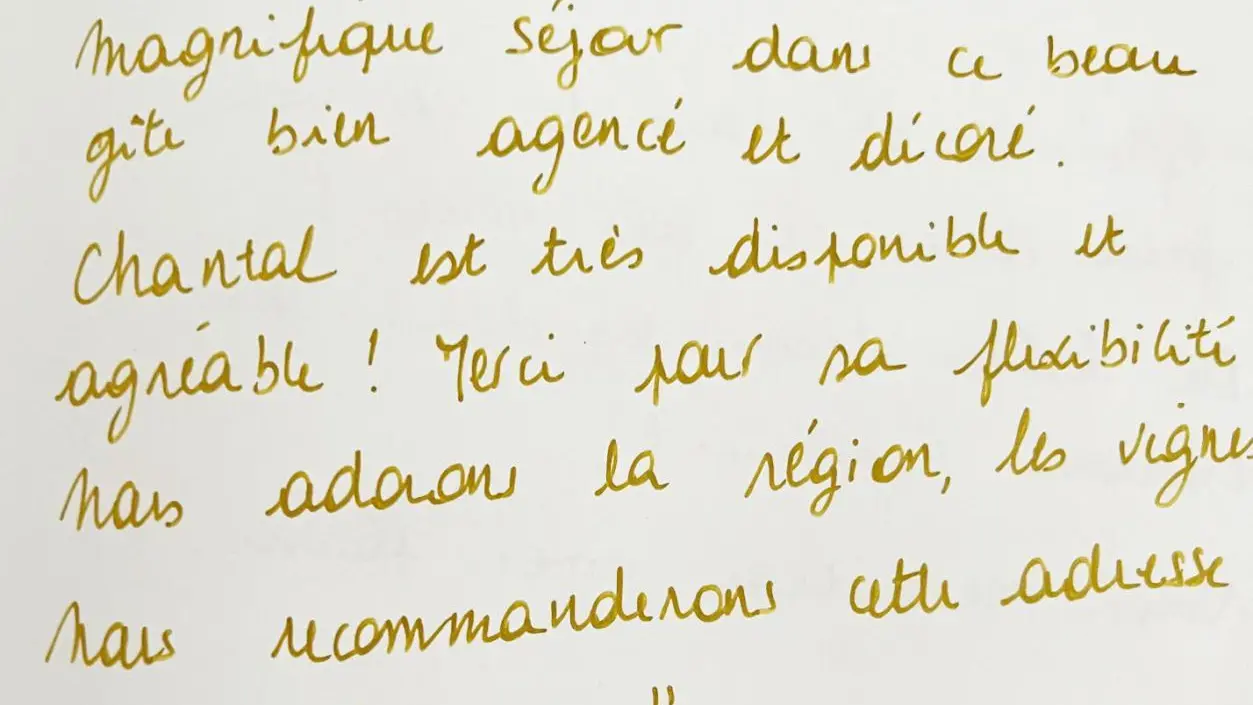 Magnifique séjour dans ce beau
gîte bien agencé et décoré.
Chantal est très disponible et
agréable ! Merci pour sa flexibilité
Nous adorons la région, les vignes
Nous recommanderons cette adresse